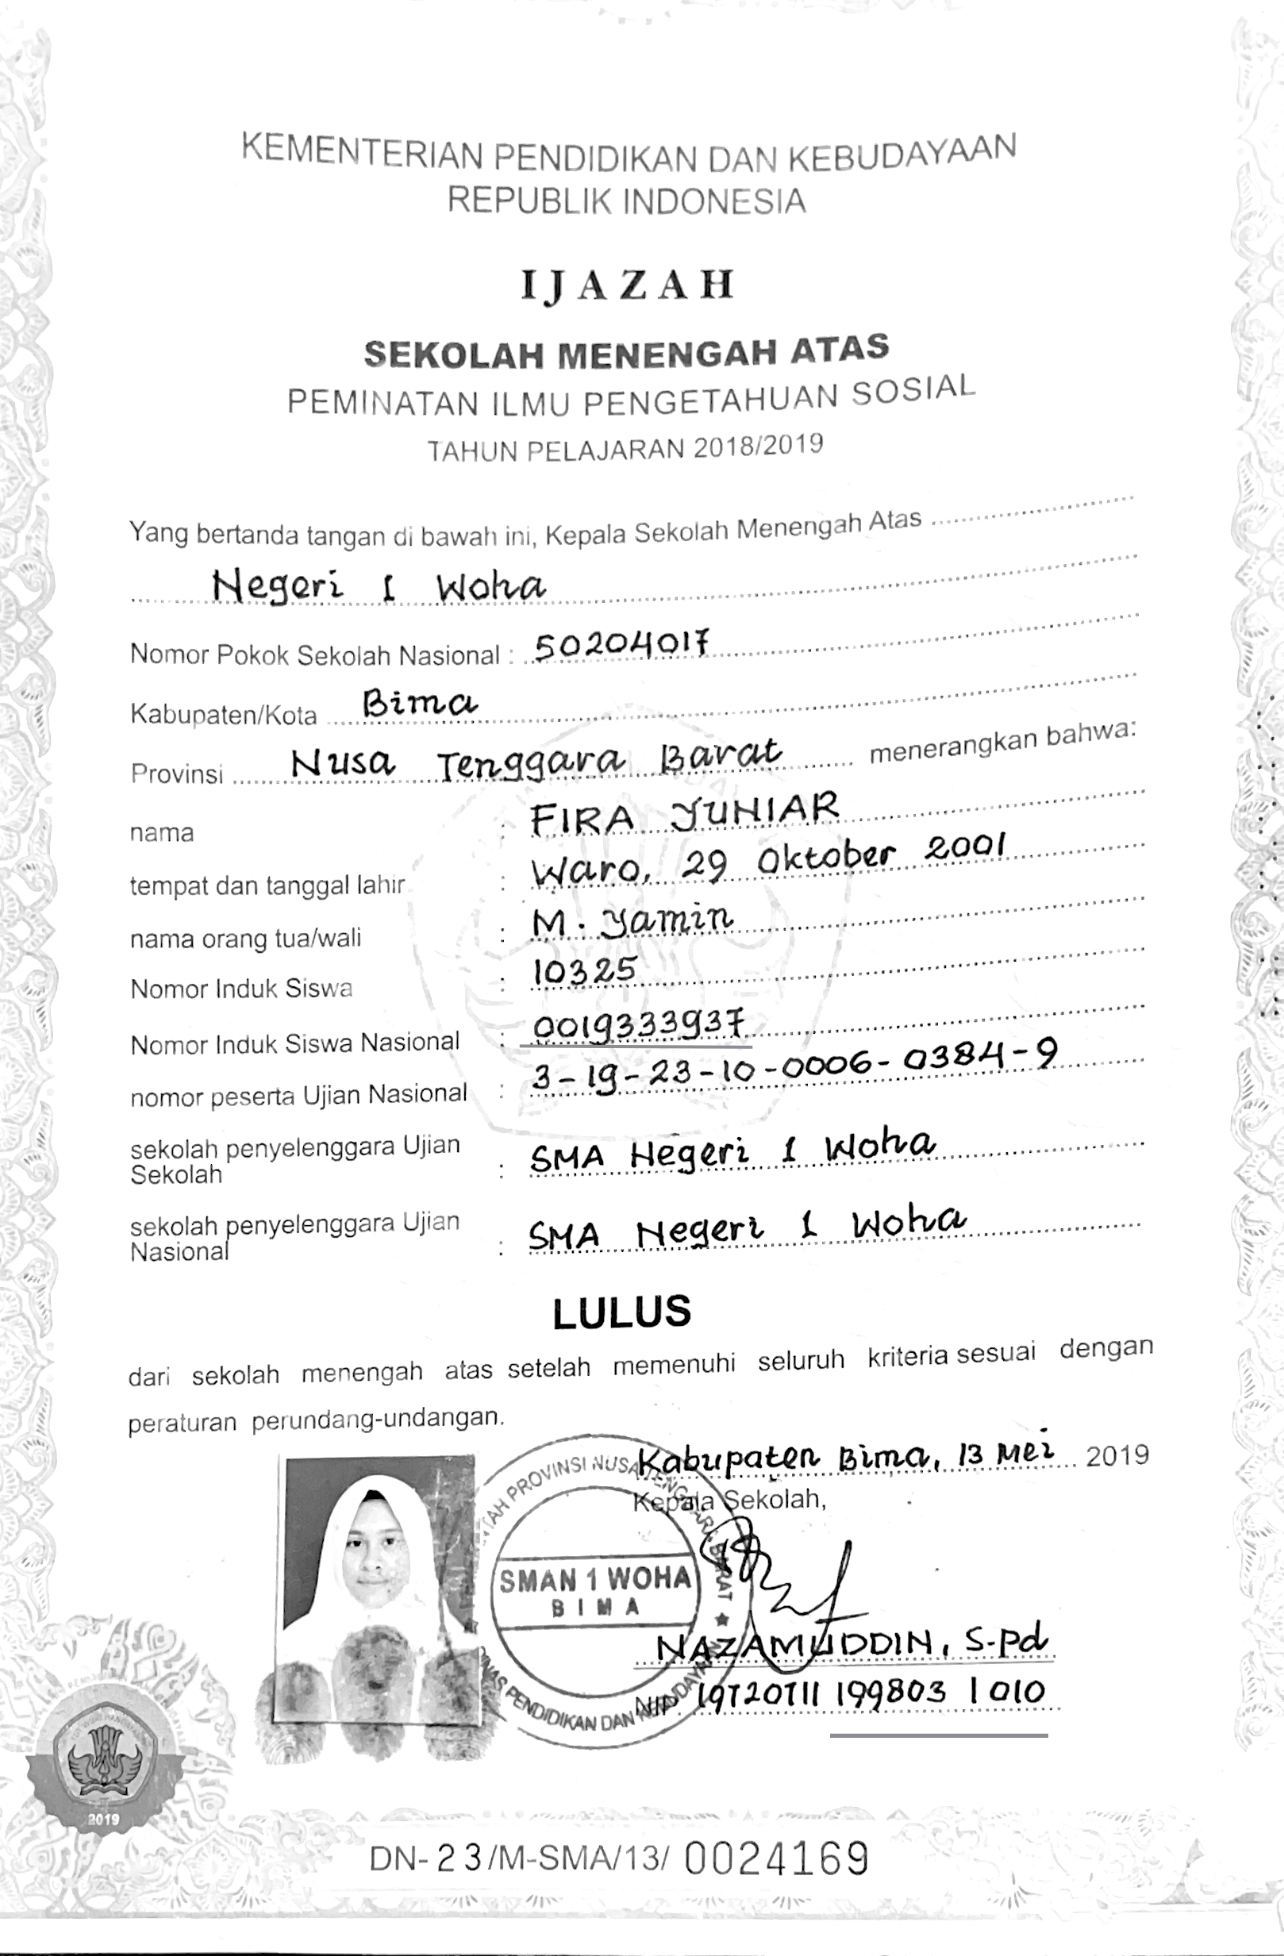 KEMENTERIAN PENDIDIKAN DAN KEBUDAYAAN
REPUBLIK INDONESIA
IJAZAH
SEKOLAH MENENGAH ATAS
PEMINATAN ILMU PENGETAHUAN SOSIAL
TAHUN PELAJARAN 2018/2019
Yang bertanda tangan di bawah ini, Kepala Sekolah Menengah Atas
Negeri 1 Woha
Nomor Pokok Sekolah Nasional : 50204017
Kabupaten/Kota Bima
Provinsi Nusa Tenggara Barat menerangkan bahwa:
nama : FIRA YUNIAR
tempat dan tanggal lahir : Waro, 29 Oktober 2001
nama orang tua/wali : M. Yamin
Nomor Induk Siswa : 10325
Nomor Induk Siswa Nasional : 0019333937
nomor peserta Ujian Nasional : 3-19-23-10-0006-0384-9
sekolah penyelenggara Ujian
Sekolah : SMA Negeri 1 Woha
sekolah penyelenggara Ujian
Nasional : SMA Negeri 1 Woha
LULUS
dari sekolah menengah atas setelah memenuhi seluruh kriteria sesuai dengan
peraturan perundang-undangan.
Kabupaten Bima, 13 Mei 2019
Kepala Sekolah,
PROVINSI NUSA TENGGARA BARAT
SMAN 1 WOHA
BIMA
PENDIDIKAN DAN KEBUDAYAAN
NAZAMUDDIN, S.Pd
NIP. 19720711 199803 1 010
2019
DN-23/M-SMA/13/ 0024169